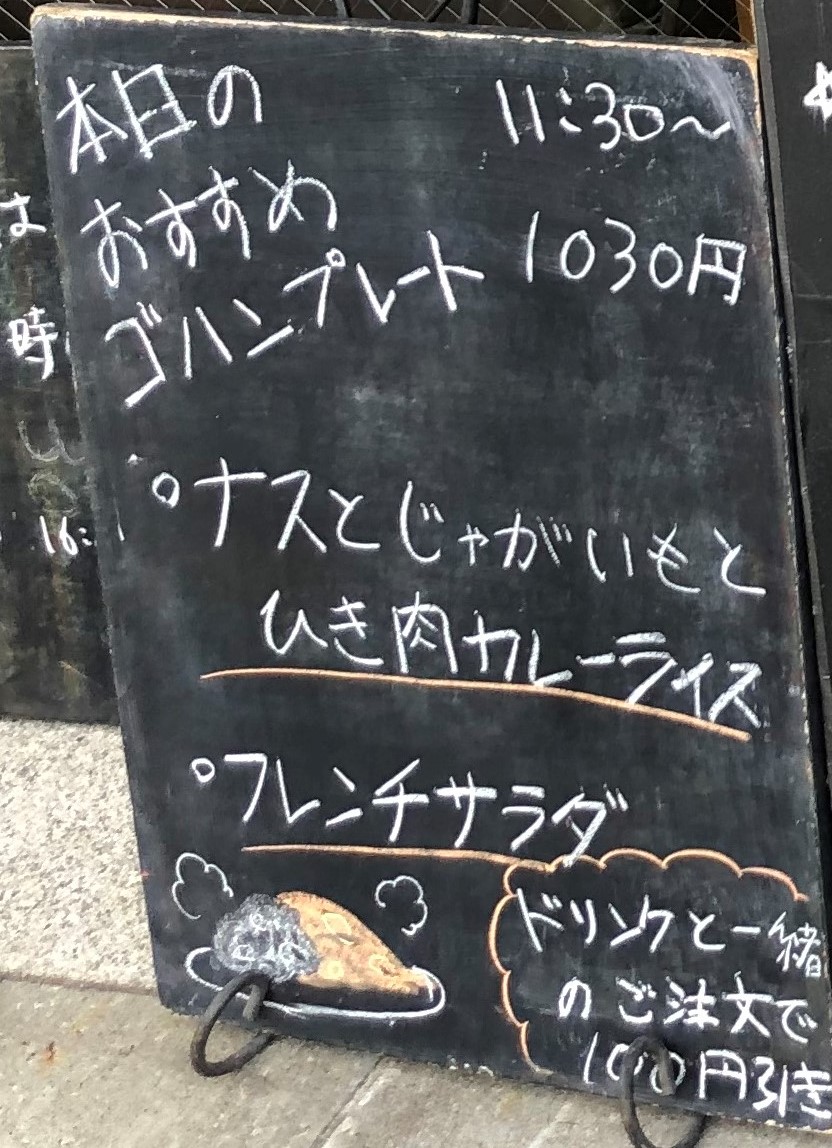 本日の 11:30～
おすすめ
ゴハンプレート 1030円
°ナスとじゃがいもと
ひき肉カレーライス
°フレンチサラダ
ドリンクと一緒
のご注文で
100円引き
は
時
16: